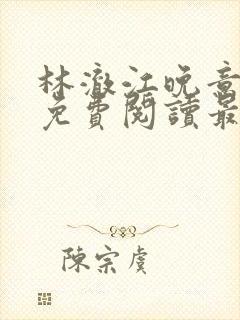 林澈江晚音
免費閱讀最
陳宗虞